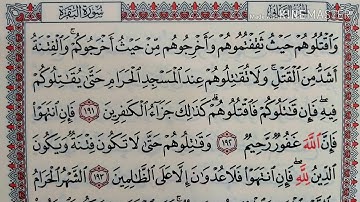 سورة البقرة
وَٱقْتُلُوهُمْ حَيْثُ ثَقِفْتُمُوهُمْ وَأَخْرِجُوهُم مِّنْ حَيْثُ أَخْرَجُوكُمْ ۚ وَٱلْفِتْنَةُ
أَشَدُّ مِنَ ٱلْقَتْلِ ۚ وَلَا تُقَٰتِلُوهُمْ عِندَ ٱلْمَسْجِدِ ٱلْحَرَامِ حَتَّىٰ يُقَٰتِلُوكُمْ
فِيهِ ۖ فَإِن قَٰتَلُوكُمْ فَٱقْتُلُوهُمْ ۗ كَذَٰلِكَ جَزَآءُ ٱلْكَٰفِرِينَ ١٩١ فَإِنِ ٱنتَهَوْا۟
فَإِنَّ ٱللَّهَ غَفُورٌ رَّحِيمٌ ١٩٢ وَقَٰتِلُوهُمْ حَتَّىٰ لَا تَكُونَ فِتْنَةٌ وَيَكُونَ
ٱلدِّينُ لِلَّهِ ۖ فَإِنِ ٱنتَهَوْا۟ فَلَا عُدْوَٰنَ إِلَّا عَلَى ٱلظَّٰلِمِينَ ١٩٣ ٱلشَّهْرُ ٱلْحَرَامُ